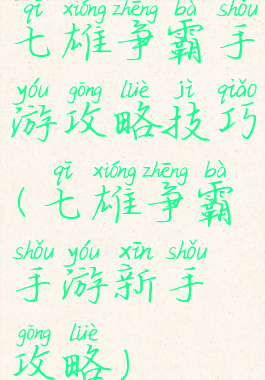 qī xióng zhēng bà shǒu
七雄争霸手
yóu gōng lüè jì qiǎo
游攻略技巧
qī xióng zhēng bà
(七雄争霸
shǒu yóu xīn shǒu
手游新手
gōng lüè
攻略)